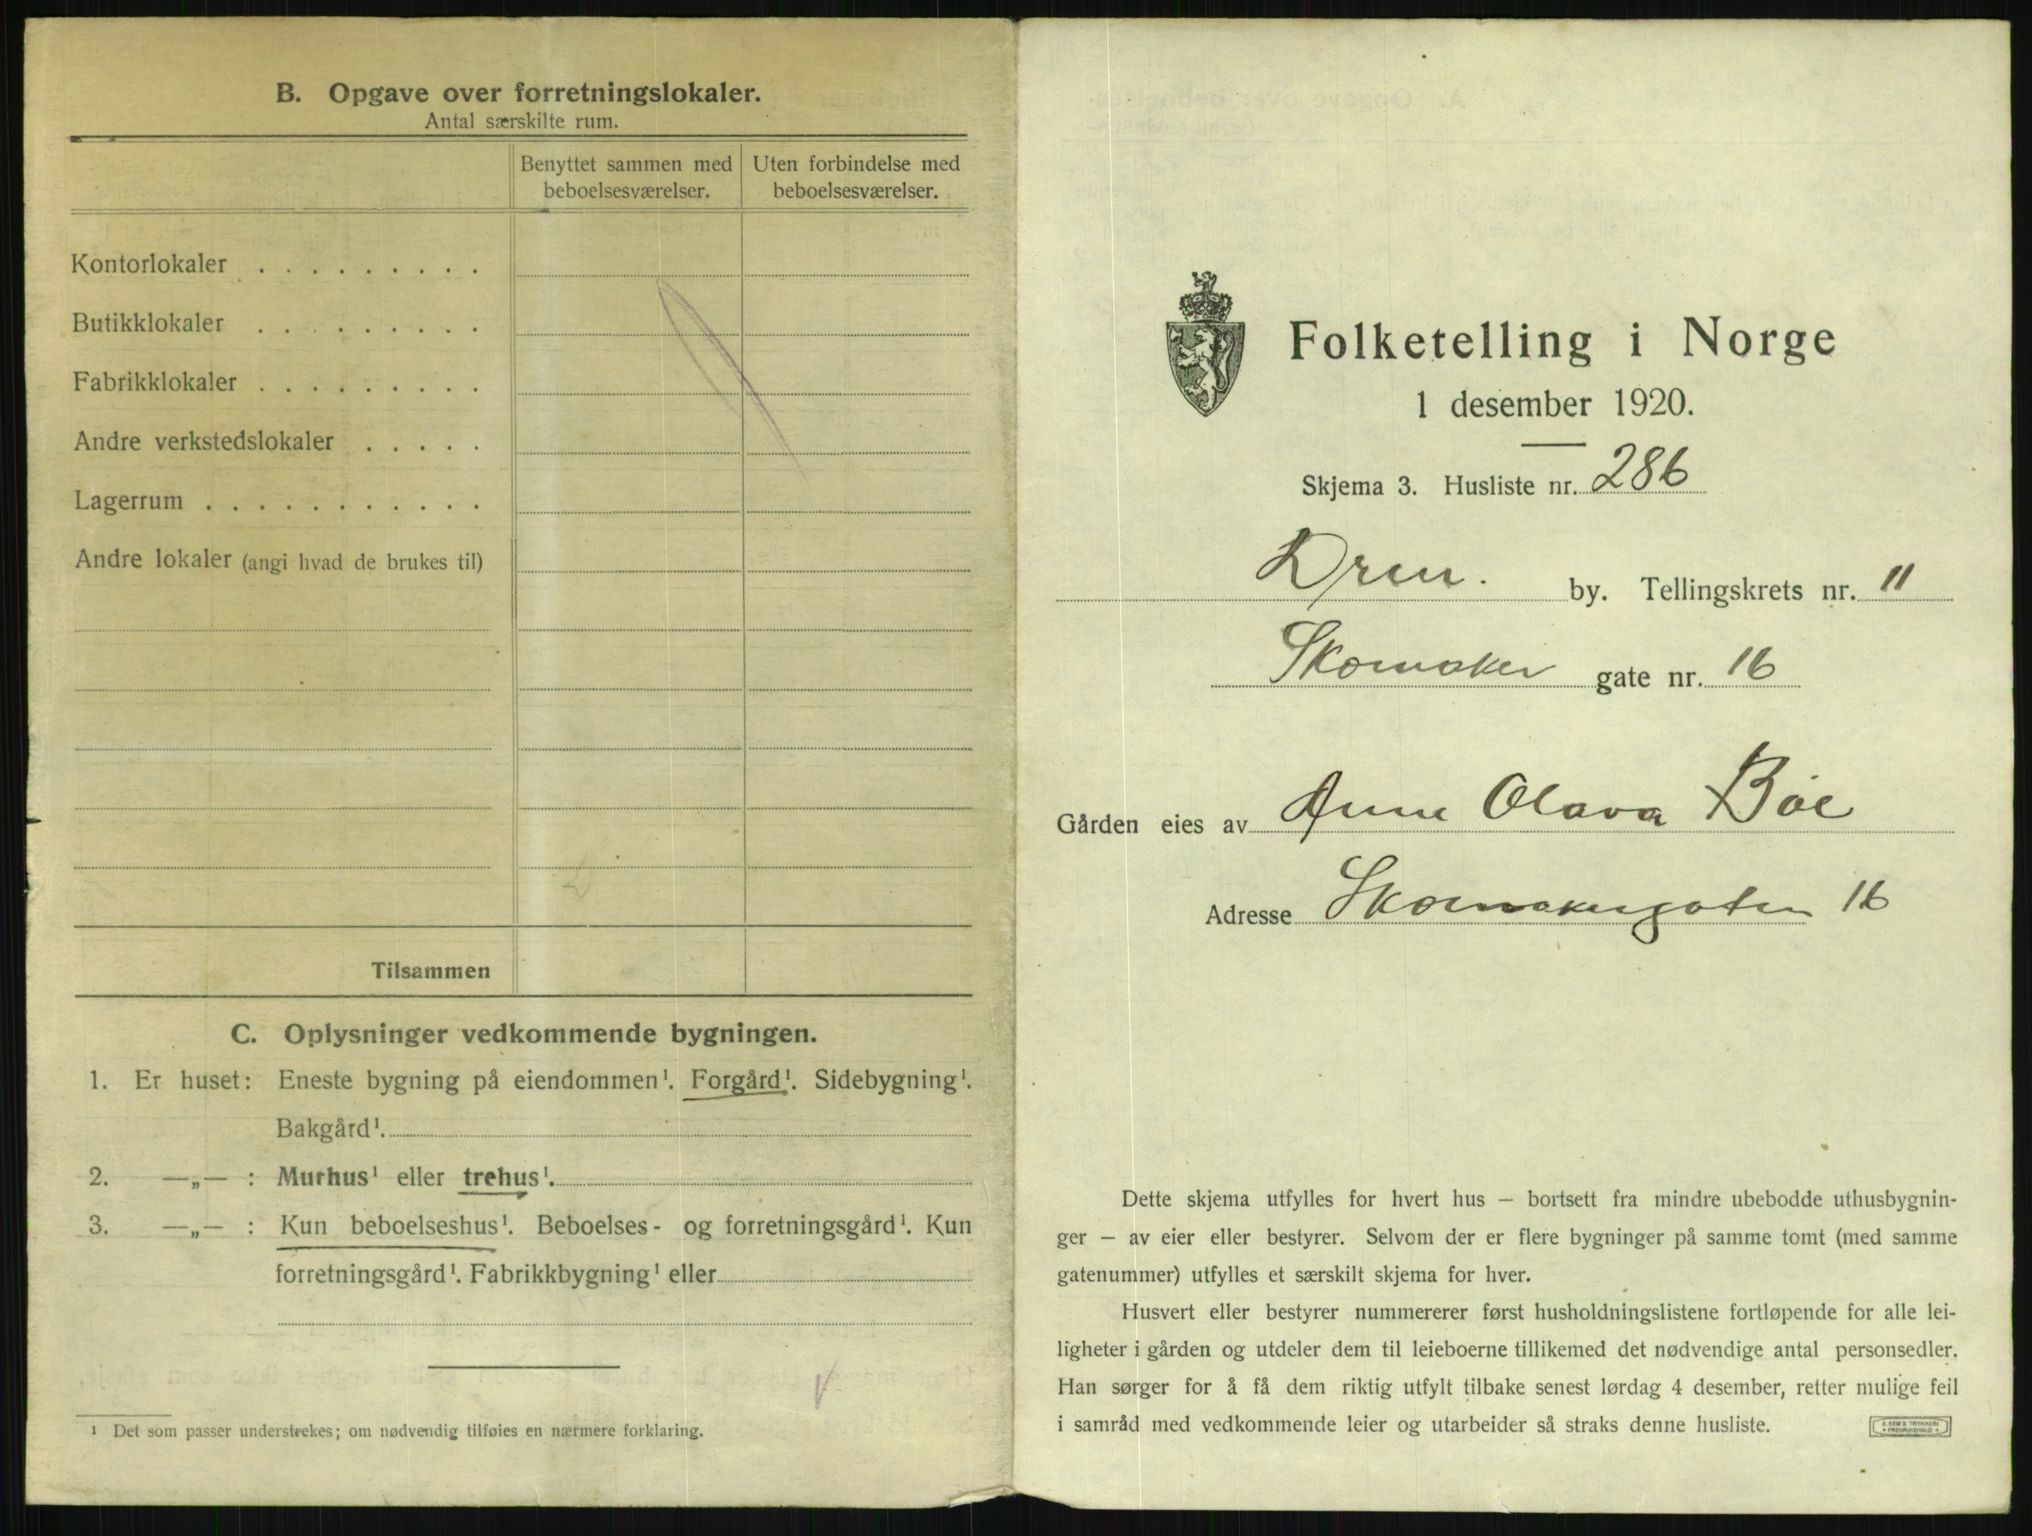 B. Opgave over forretningslokaler.
Antal særskilte rum.
Benyttet sammen med beboelsesværelser.
Uten forbindelse med beboelsesværelser.
Kontorlokaler . . . . . . . . .
Butikklokaler . . . . . . . . .
Fabrikklokaler . . . . . . . . .
Andre verkstedslokaler . . . . .
Lagerrum . . . . . . . . . . .
Andre lokaler (angi hvad de brukes til)
Tilsammen
C. Oplysninger vedkommende bygningen.
1. Er huset: Eneste bygning på eiendommen¹. Forgård¹. Sidebygning¹.
Bakgård¹.
2. —„— : Murhus¹ eller trehus¹.
3. —„— : Kun beboelseshus¹. Beboelses- og forretningsgård¹. Kun
forretningsgård¹. Fabrikkbygning¹ eller
¹ Det som passer understrekes; om nødvendig tilføies en nærmere forklaring.
Folketelling i Norge
1 desember 1920.
Skjema 3. Husliste nr. 286
Drm. by. Tellingskrets nr. 11
Skomaker gate nr. 16
Gården eies av Anne Olava Bøe
Adresse Skomakergaten 16
Dette skjema utfylles for hvert hus — bortsett fra mindre ubebodde uthusbygnin-
ger — av eier eller bestyrer. Selvom der er flere bygninger på samme tomt (med samme
gatenummer) utfylles et særskilt skjema for hver.
Husvert eller bestyrer nummererer først husholdningslistene fortløpende for alle lei-
ligheter i gården og utdeler dem til leieboerne tillikemed det nødvendige antal personsedler.
Han sørger for å få dem riktig utfylt tilbake senest lørdag 4 desember, retter mulige feil
i samråd med vedkommende leier og utarbeider så straks denne husliste.
E. SEM'S TRYKKERI
FREDRIKSHALD